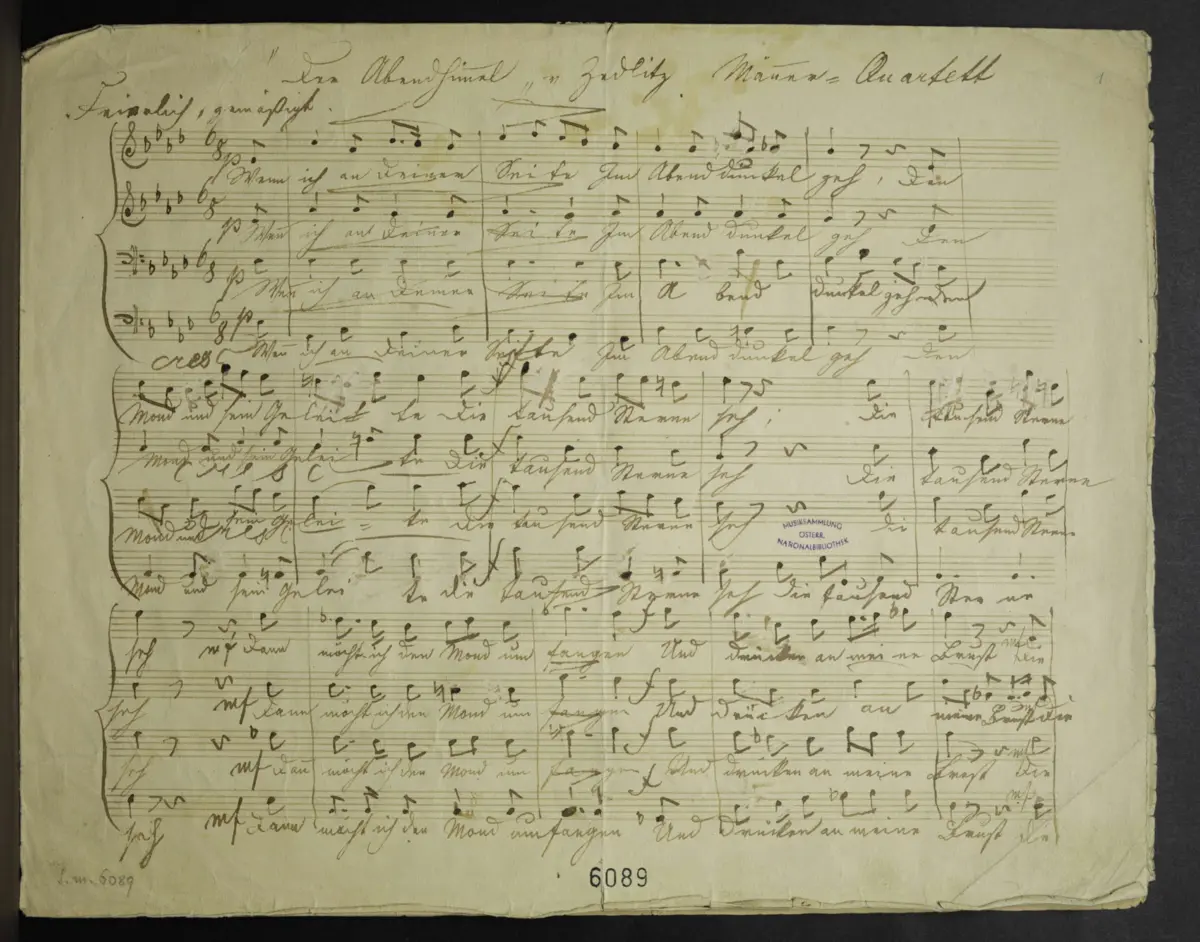 "Der Abendhimmel" v Zedlitz. Männer=Quartett
1
Feierlich, gemäßigt.
p Wenn ich an Deiner Seite Im Abenddunkel geh, Den
p Wenn ich an Deiner Seite Im Abend dunkel geh Den
p Wenn ich an Deiner Seite Im A bend dunkel geh Den
p Wenn ich an Deiner Seite Im Abend dunkel geh Den
cres
Mond und sein Gelei te Die tausend Sterne seh, Die tausend Sterne
Mond und sein Gelei te Die tausend Sterne seh Die tausend Sterne
Mond und sein Gelei = te Die tausend Sterne seh Die tausend Sterne
MUSIKSAMMLUNG
ÖSTERR.
NATIONALBIBLIOTHEK
Mond und sein Gelei te Die tausend Sterne seh Die tausend Ster ne
seh mf Dann möcht ich den Mond um fangen f Und drücken an mei ne Brust mf Die
seh mf Dann möcht ich den Mond um fangen f Und drücken an meine Brust Die
seh mf Dann möcht ich den Mond um fangen f Und drücken an meine Brust mf Die
seh mf Dann möcht ich den Mond umfangen f Und drücken an meine Brust mf Die
S.m. 6089
6089